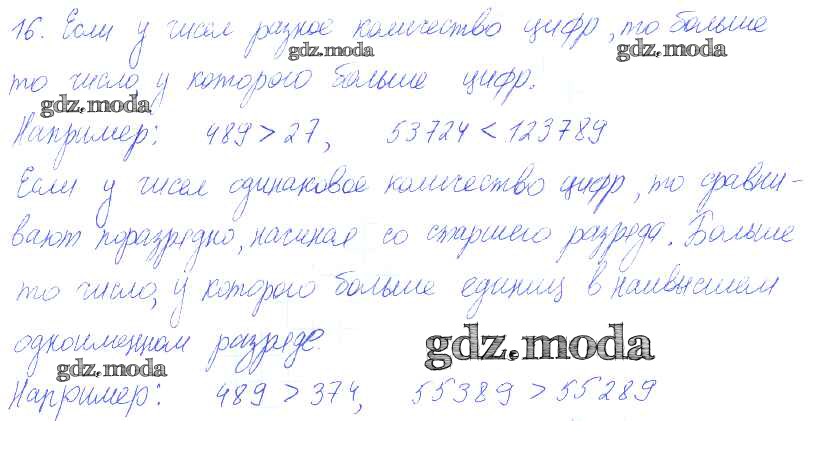 16. Если у чисел разное количество цифр, то больше
gdz.moda gdz.moda
то число, у которого больше цифр.
gdz.moda
Например: 489 > 27, 53724 < 123789
Если у чисел одинаковое количество цифр, то сравни-
вают поразрядно, начиная со старшего разряда. Больше
то число, у которого больше единиц в наивысшем
одноименном разряде.
gdz.moda
gdz.moda
Например: 489 > 374, 55389 > 55289